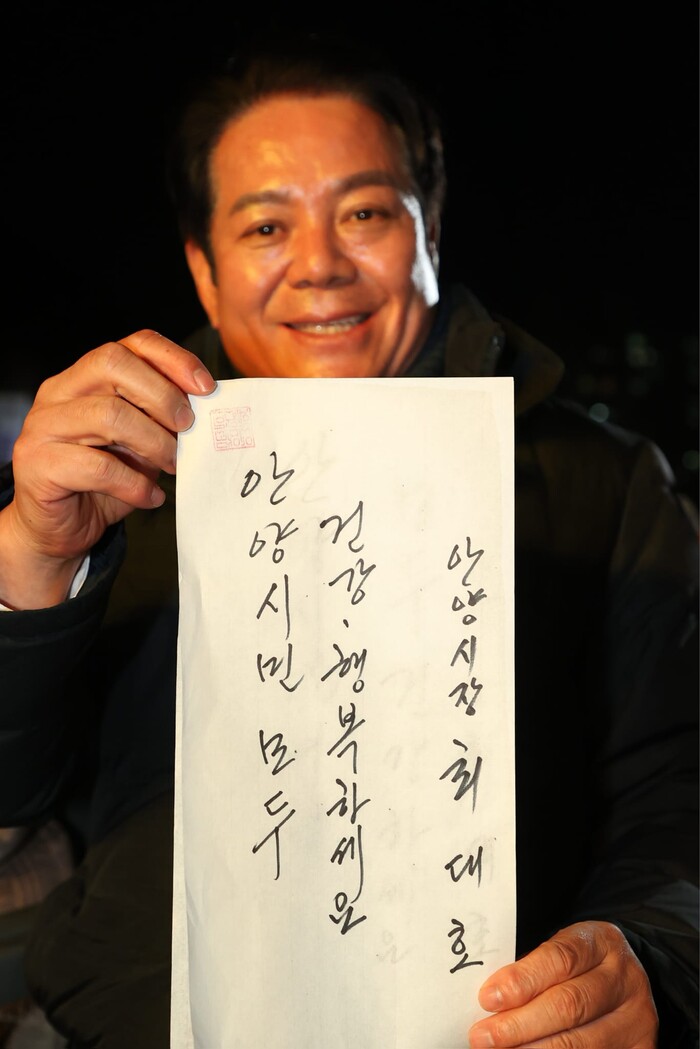 안양시민 모두
건강, 행복하세요
안양시장 최대호